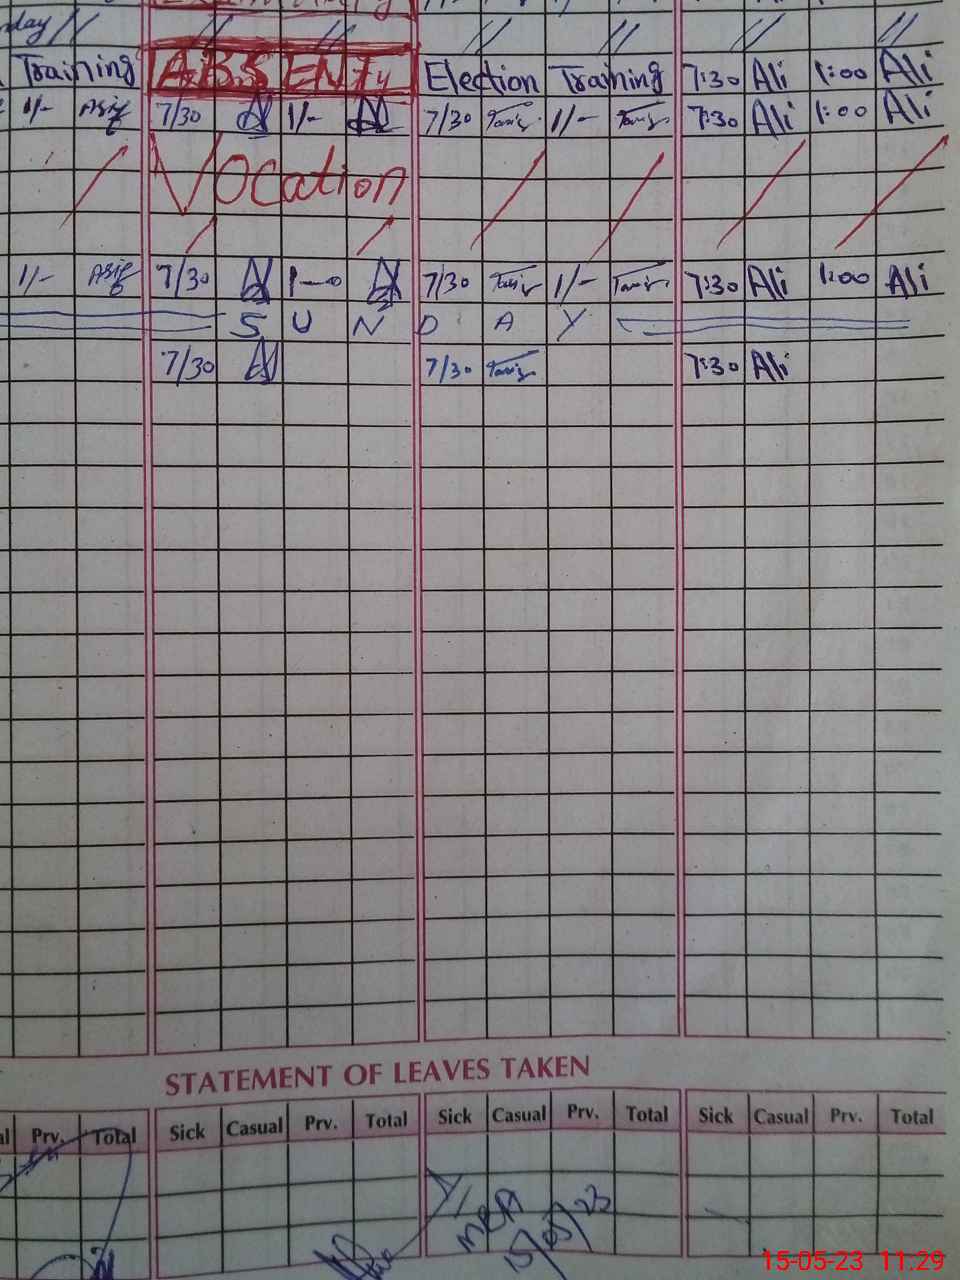 day // // // // // // //
Training ABSENT Election Training 7:30 Ali 1:00 Ali
1/- Asif 7/30 1/- 7/30 Tariq 1/- Tariq 7:30 Ali 1:00 Ali
Vocation
1/- Asif 7/30 1-0 7/30 Tariq 1/- Tariq 7:30 Ali 1:00 Ali
S U N D A Y
7/30 7/30 Tariq 7:30 Ali
STATEMENT OF LEAVES TAKEN
Prv. Total Sick Casual Prv. Total Sick Casual Prv. Total Sick Casual Prv. Total
MEA
15/05/23
15-05-23 11:29